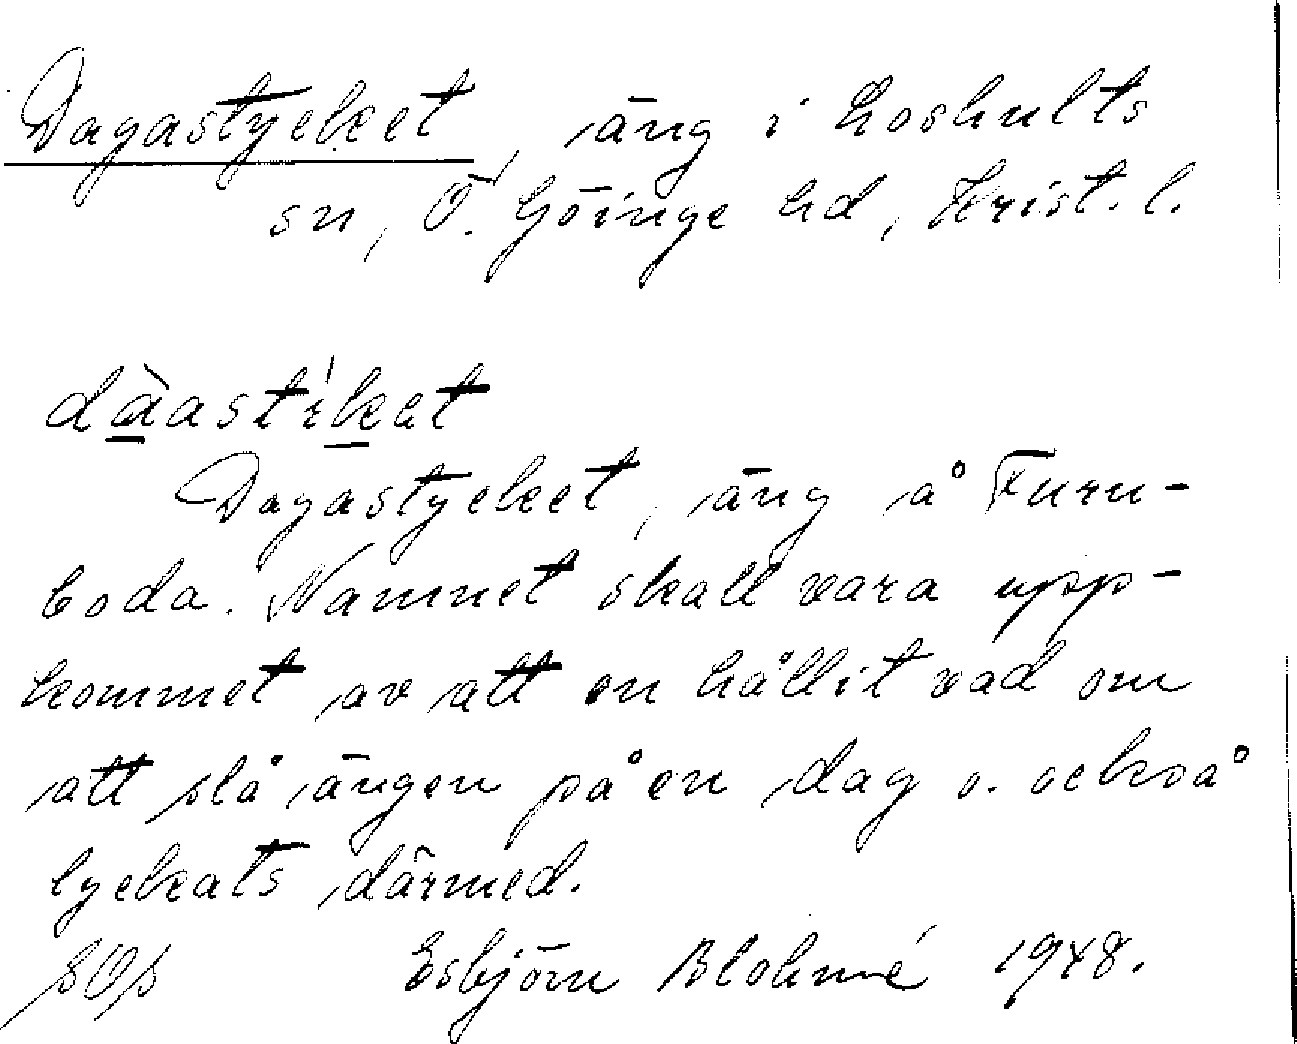 Dagastycket, äng i Loshults
sn, Ö. Göinge hd, Krist. l.
dàastikat
Dagastycket, äng å Furu-
boda. Namnet skall vara upp-
kommet av att en hållit vad om
att slå ängen på en dag o. också
lyckats därmed.
Esbjörn Blohmé 1948.